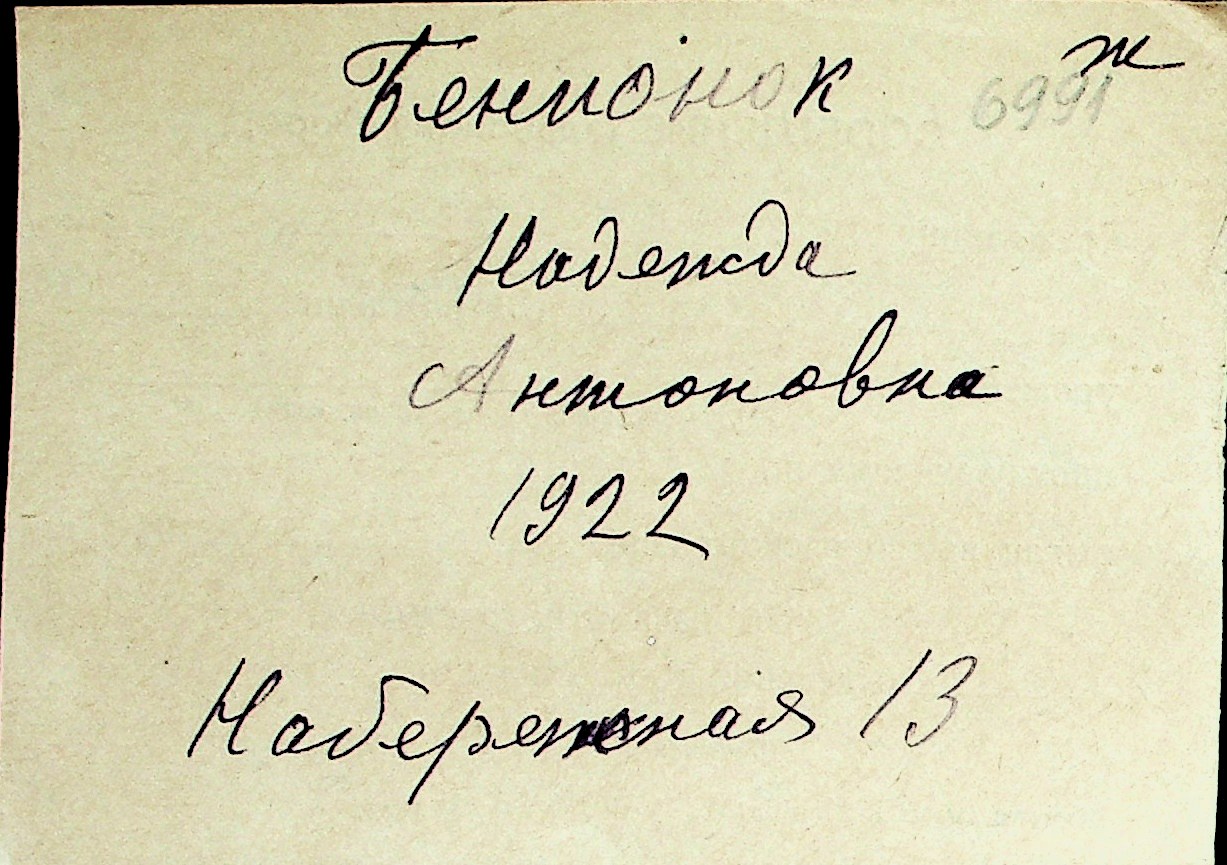 Бенионок ж
6991
Надежда
Антоновна
1922
Набережная 13